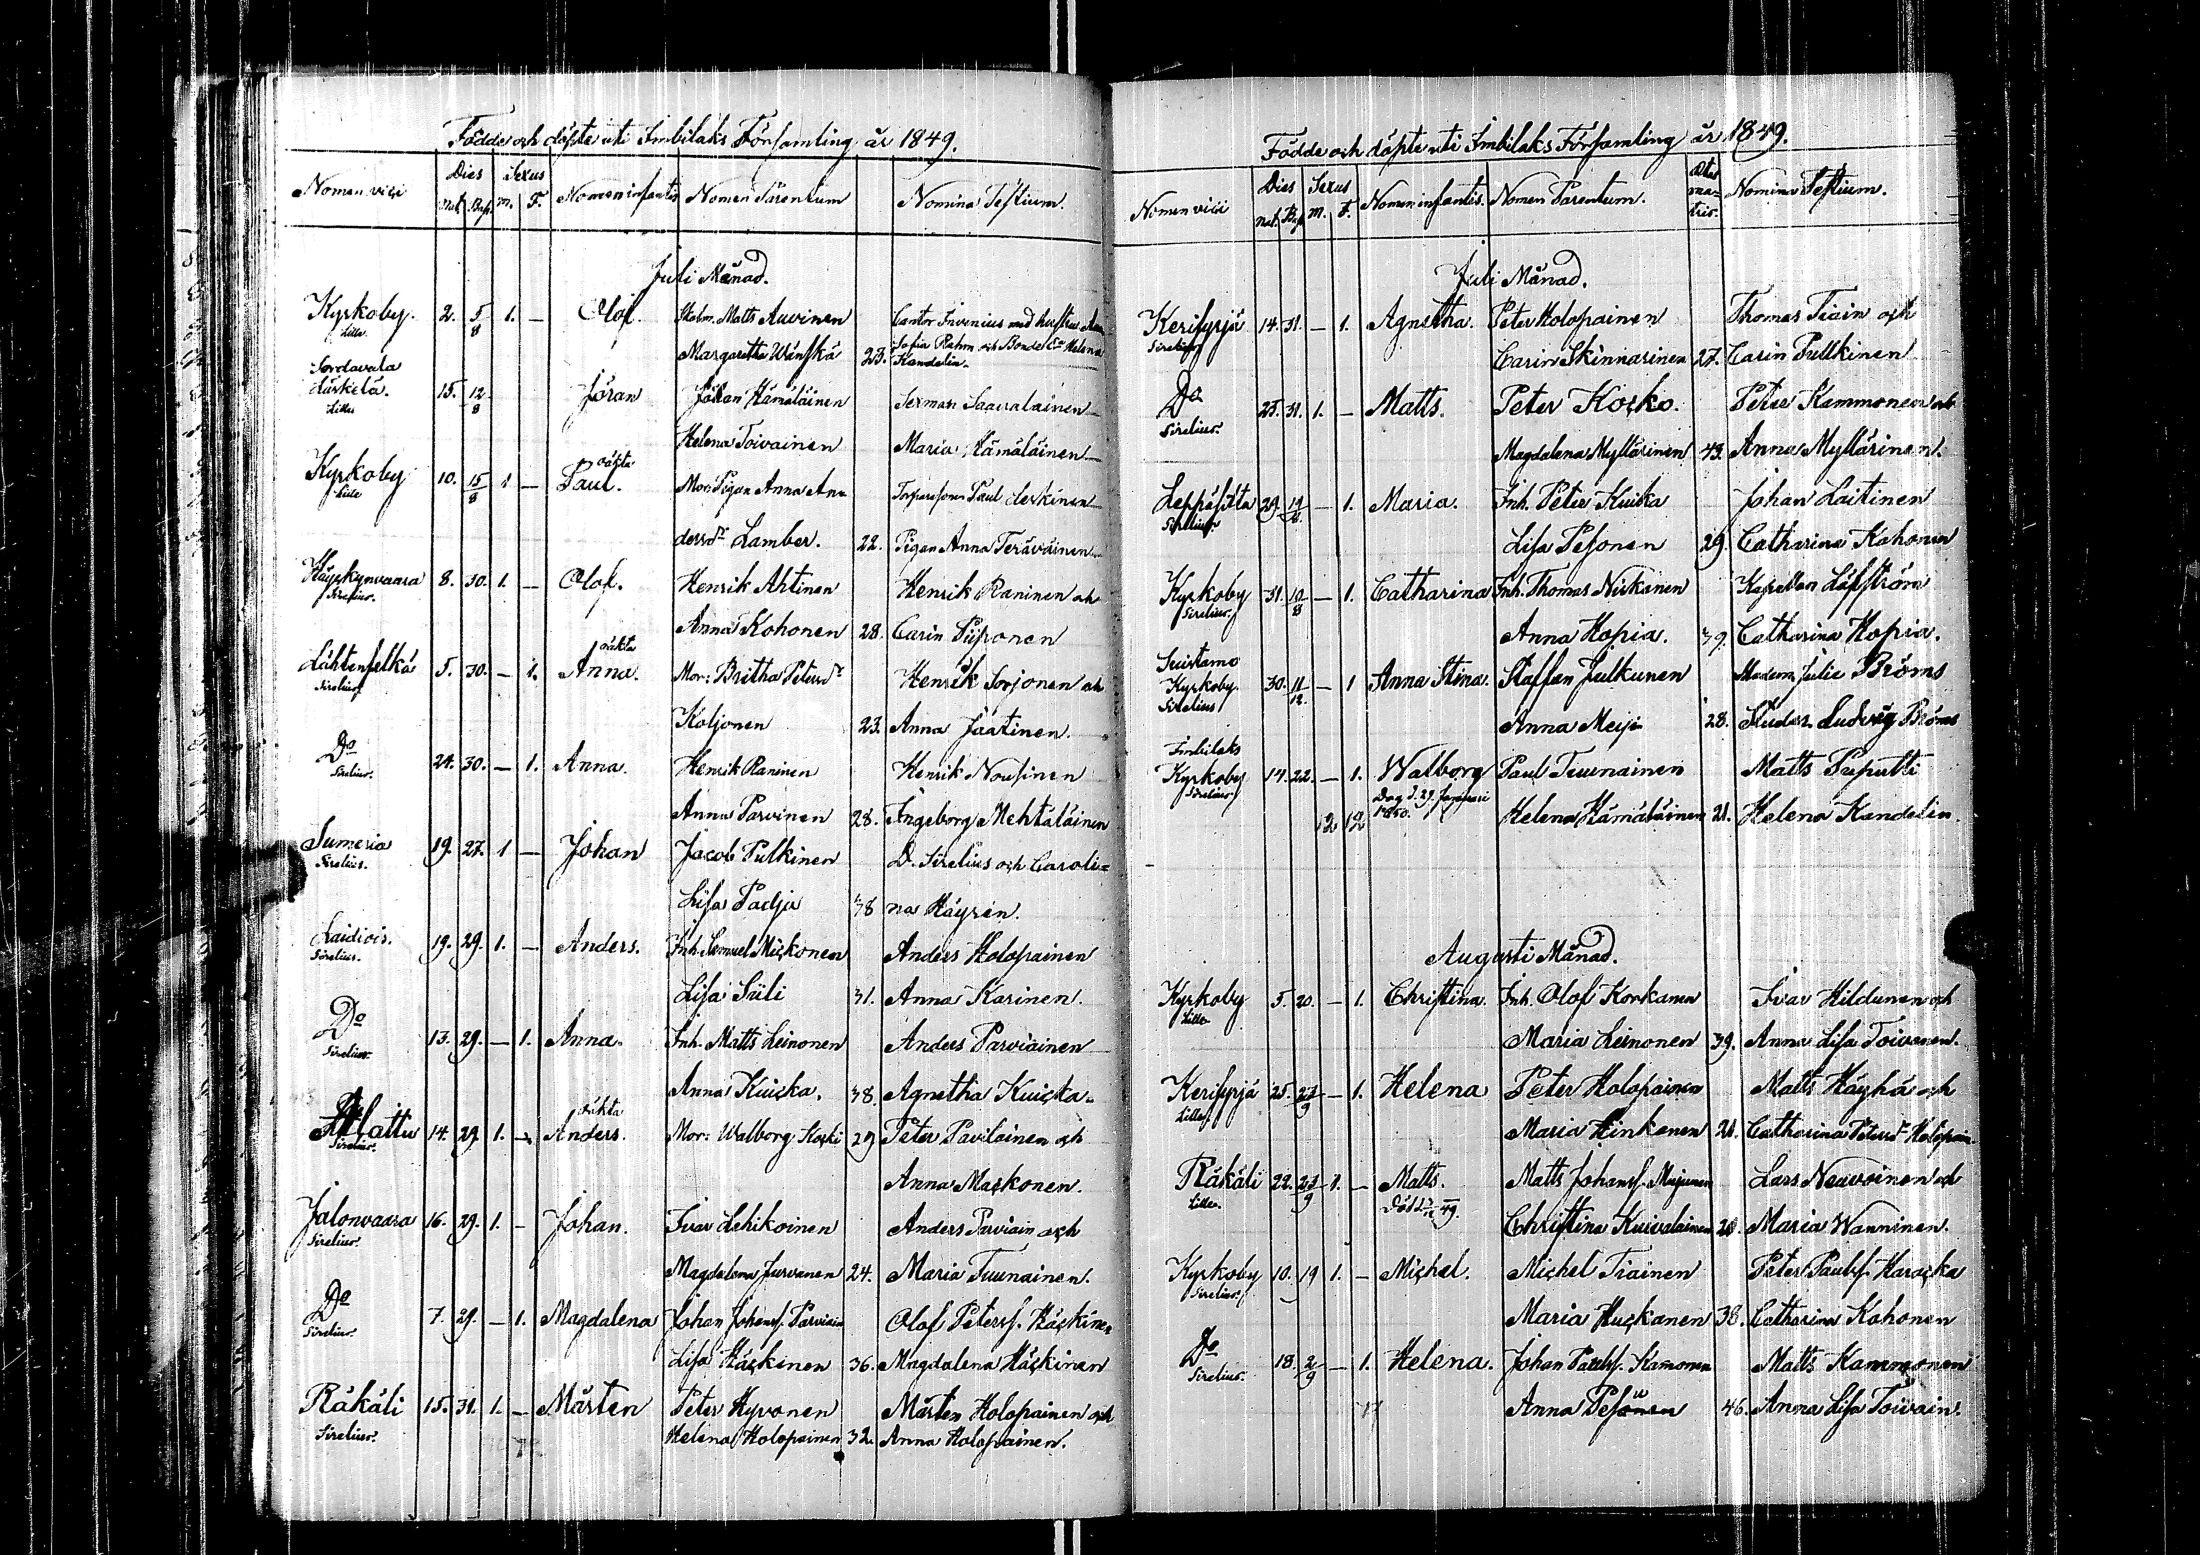 Födde och döpte uti Imbilaks Församling år 1849.
Nomen vici Dies Sexus Nomen infantis Nomen Parentum Nomina Testium.
Nat. Bap. m. F.
Juli Månad.
Kyrkoby. 2. 5/8 1. — Olof. Matts Auvinen Cantor Invenius med hustru
Lille.
Margaretha Wänskä 23. Sofia Rahm och Bonde Helena
Kandelin.
Sordavala
Läskelä. 15. 12/8 Jöran Johan Hämäläinen Saavalainen
Lille
Helena Toivainen Maria Hämäläinen
Kyrkoby 10. 15/8 1 — oäkta Paul. Mor: Pigan Anna An- Paul Leskinen
Lille
dersdr Lamber. 22. Pigan Anna Teräväinen
Häyskynvaara 8. 30. 1. — Olof. Henrik Ahtinen Henrik Raninen och
Sirelius.
Anna Kohonen 28. Carin Piiponen
Lähtenselkä 5. 30. — 1. oäkta Anna. Mor: Britha Petersdr Henrik Sorjonen och
Sirelius
Koljonen 23. Anna Jäätinen.
Do 24. 30. — 1. Anna. Henrik Raninen Henrik Nousinen
Sirelius.
Anna Parvinen 28. Ingeborg Mehtäläinen
Sumeria 19. 27. 1 — Johan Jacob Pulkinen D. Sirelius och Caroli=
Sirelius.
Lisa Padja 38 na Häyrén.
19. 29. 1. — Anders. Inh. Samuel Mickonen Anders Holopainen
Sirelius.
Lisa Siili 31. Anna Karinen.
Do 13. 29. — 1. Anna. Inh. Matts Leinonen Anders Parviainen
Sirelius.
Anna Kuicka. 38. Agnetha Kuicka.
Alattu 14. 29. 1. — oäkta Anders. Mor: Walborg Koski 29 Peter Pavilainen och
Sirelius.
Anna Mackonen.
Jalonvaara 16. 29. 1. — Johan. Ivar Lehikoinen Anders Parviain och
Sirelius.
Magdalena Jurvanen 24. Maria Tuunainen.
Do 7. 29. — 1. Magdalena Johan Johansf. Parviain Olof Petersf. Häckinen
Sirelius.
Lisa Häckinen 36. Magdalena Häckinen
Räkäli 15. 31. 1. — Mårten Peter Hyvonen Mårten Holopainen och
Sirelius.
Helena Holopainen 32. Anna Holopainen.
Födde och döpte uti Imbilaks Församling år 1849.
Nomen vici Dies Sexus Nomen infantis. Nomen Parentum. Ætas ma- tris. Nomina Testium.
Nat. Bap m. F.
Juli Månad.
Kerisyrjä 14. 31. — 1. Agnetha. Peter Holopainen Thomas Tiain och
Sirelius
Carin Skinnarinen 27. Carin Pullkinen
Do 25. 31. 1. — Matts. Peter Kocko. Peter Kammonen och
Sirelius.
Magdalena Myllärinen 43. Anna Myllärinen.
Leppäsilta 29. — 1. Maria. Inh. Peter Kuicka Johan Laitinen
Sirelius.
Lisa Pesonen 29. Catharina Kohonen
Kyrkoby 31. 12/8 — 1. Catharina Inh. Thomas Niskanen Kapellan Löfström
Sirelius.
Anna Hopia. 39. Catharina Hopia.
Suistamo
Kyrkoby. 30. 11/12. — 1 Anna Stina. Staffan Julkunen Madem Julie Broms
Sirelius
Anna Meiji 28. Studer. Ludvig Broms
Imbilaks
Kyrkoby 14. 22. — 1. Walborg Paul Tuunainen Matts Puputti
Sirelius
Dog d. 29. Januari
1850. Helena Hämäläinen 21. Helena Kandelin.
12 12
Augusti Månad.
Kyrkoby 5. 20. — 1. Christina. Inh. Olof Korkanen Ivar Hildunen och
Lille
Maria Leinonen 39. Anna Lisa Toivanen.
Kerisyrjä 25. 23/9 — 1. Helena Peter Holopainen Matts Häyhä och
Lille
Maria Hinkanen 21. Catharina Petersdr Holopain
Räkäli 22. 23/9 1. — Matts. Matts Johansf. Lars Nauvoinen och
Lille.
Död 49. Christina Kuivalainen 28. Maria Wanninen.
Kyrkoby 10. 19 1. — Michel. Michel Tiainen Peter Paulsf. Haracka
Sirelius.
Maria Huckanen 38. Catharina Kohonen
Do 18. 2/9 — 1. Helena. Johan Paulsf. Kamonen Matts Kammonen
Sirelius.
Anna Pesonen 46. Anna Lisa Toivain.